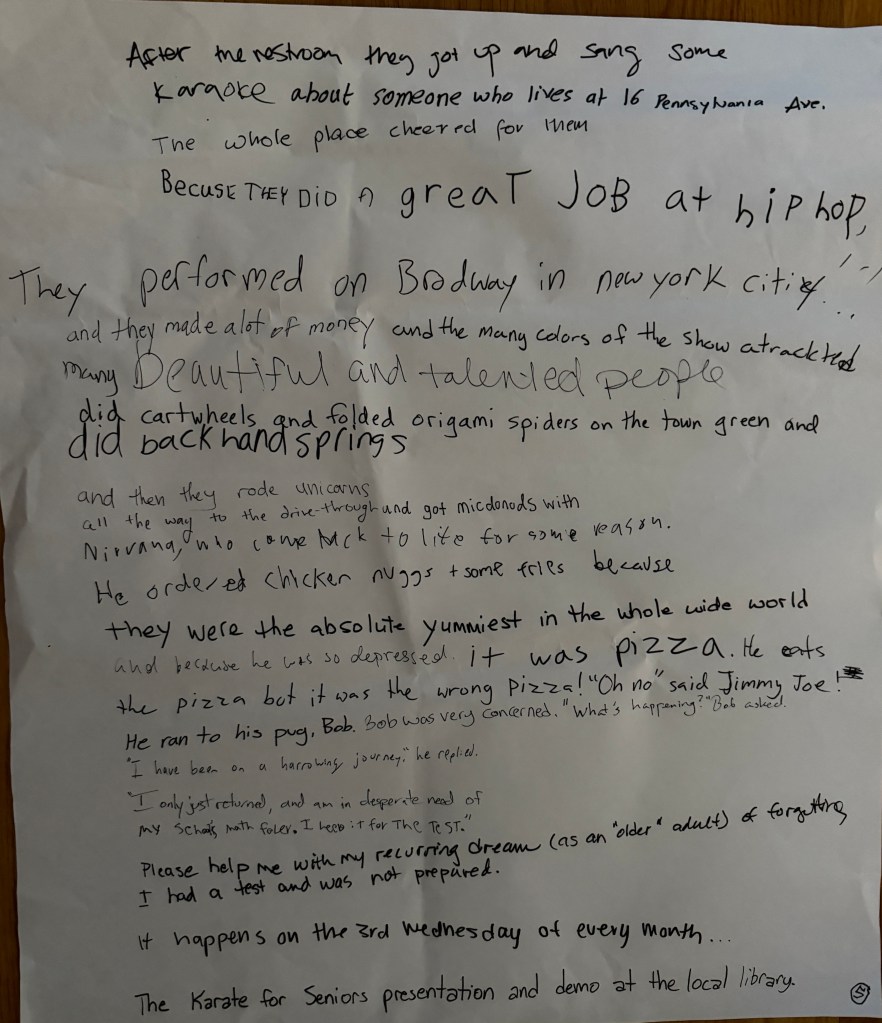 After the restroom they got up and sang some
Karaoke about someone who lives at 16 Pennsylvania Ave.
The whole place cheered for them
Becuse THEY DiD A greaT JOB at hiphop,
They performed on Bradway in new york citiy!
and they made alot of money and the many colors of the show atrackted
many Beautiful and talented people
did cartwheels and folded origami spiders on the town green and
did back hand springs
and then they rode unicorns
all the way to the drive-through and got micdonods with
Nirvana, who came back to life for some reason.
He ordered chicken nuggs + some fries because
they were the absolute yummiest in the whole wide world
and because he was so depressed. it was pizza. He eats
the pizza but it was the wrong Pizza! "Oh no" said Jimmy Joe!
He ran to his pug, Bob. Bob was very concerned. "What's happening?" Bob asked.
"I have been on a harrowing journey." he replied.
"I only just returned, and am in desperate need of
my math I keep it for The TEST."
Please help me with my recurring dream (as an "older" adult) of forgetting
I had a test and was not prepared.
It happens on the 3rd Wednesday of every month...
The Karate for Seniors presentation and demo at the local library.
5